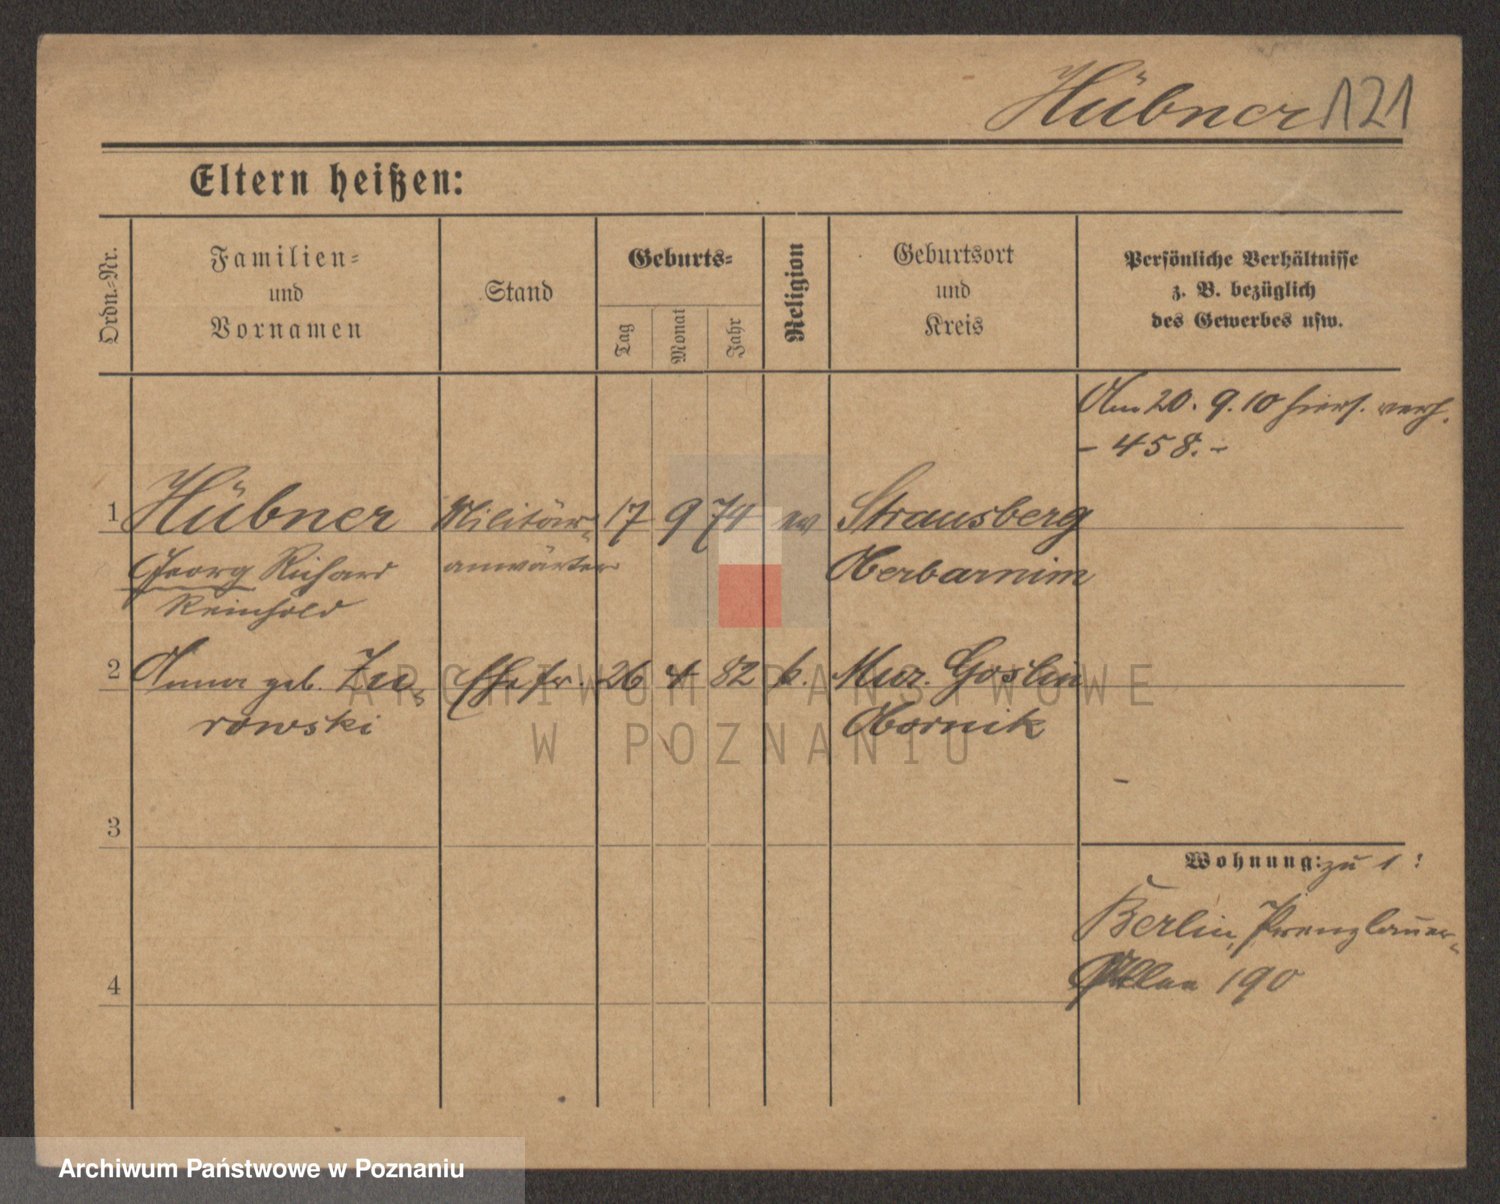 Hübner 121
Eltern heißen:
Ordn.-Nr.
Familien-
und
Vornamen
Stand
Geburts-
Tag
Monat
Jahr
Religion
Geburtsort
und
Kreis
Persönliche Verhältnisse
z. B. bezüglich
des Gewerbes usw.
Am 20. 9. 10 hiers. verh.
- 458. -
1 Hübner Militär- 17 9 74 ev Strausberg
Georg Richard anwärter Oberbarnim
Reinhold
2 Anna geb. Ehefr. 26 4 82 k. Mur. Goslin
rowski Obornik
3
Wohnung: zu 1:
Berlin, Prenzlauer-
4 Allee 190
ARCHIWUM PAŃSTWOWE
W POZNANIU
Archiwum Państwowe w Poznaniu